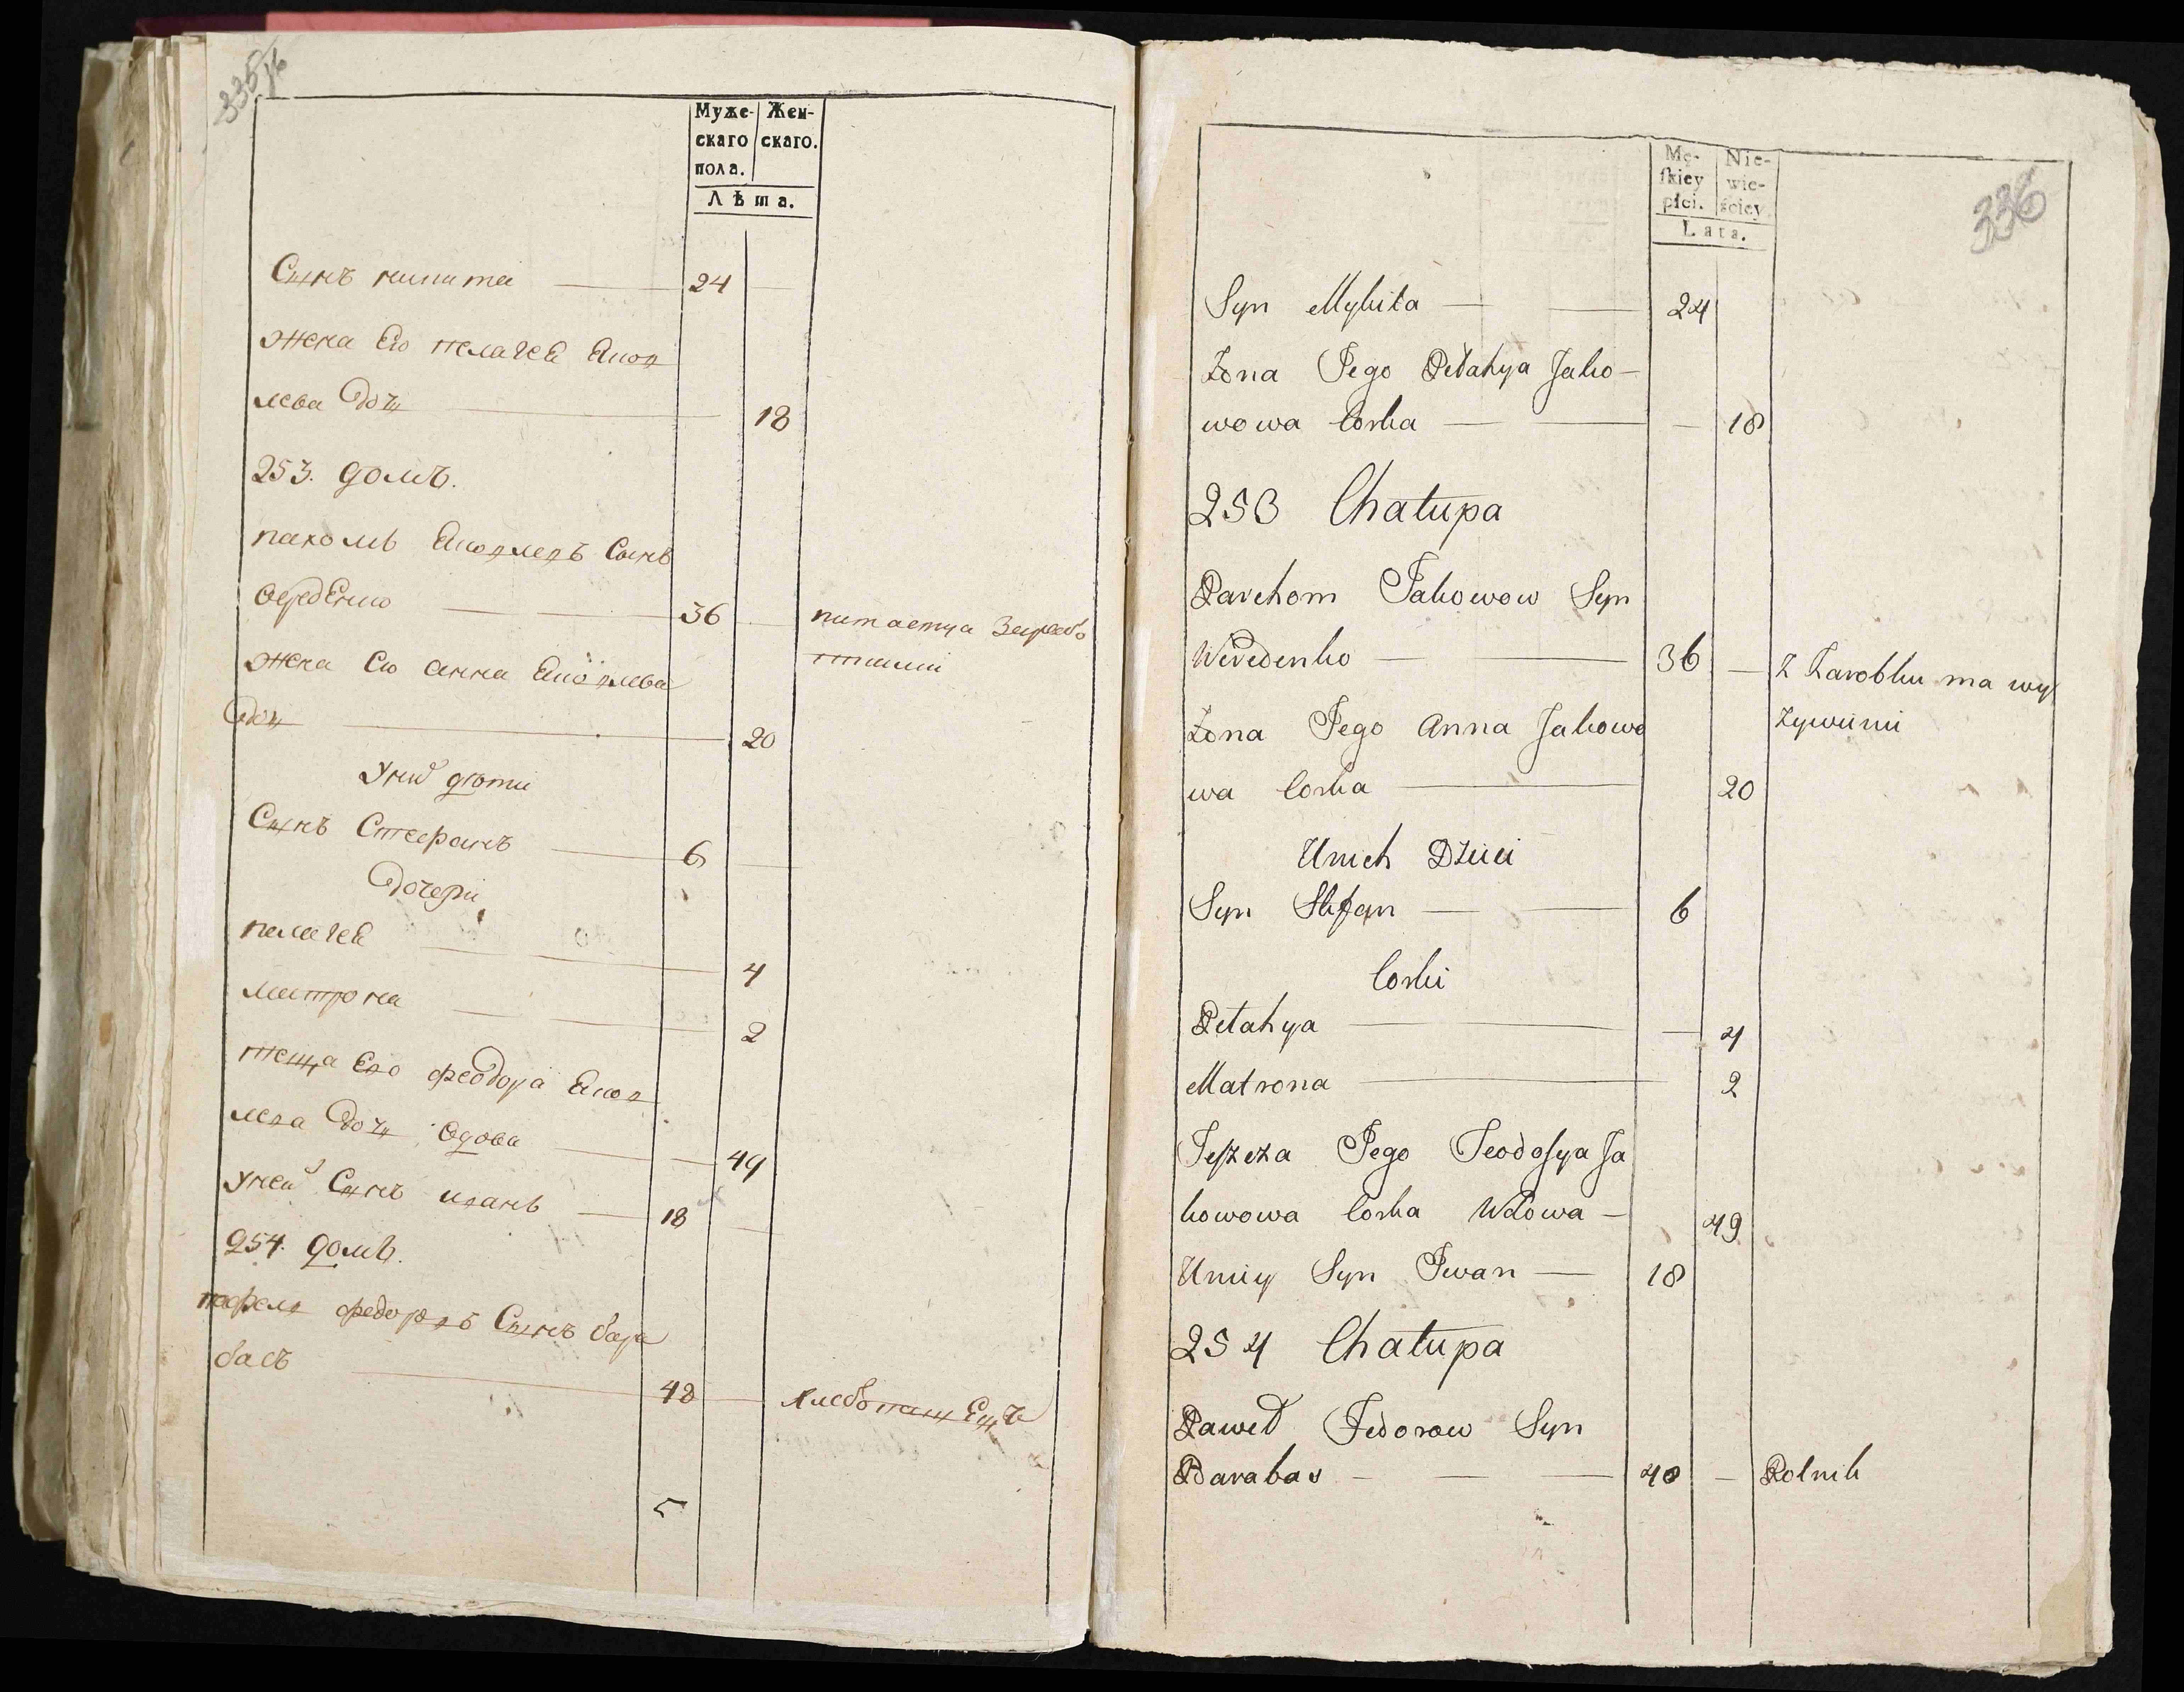 335 1б
Муже- Жен-
скаго скаго.
пола.
Лѣта.
Сынъ никита 24
жена Его пелагея Яков
лева дочь 18
253. домъ.
пахомъ Яковлевъ Сынъ
середенко 36 питается Зарабо
тками
жена Его анна Яковлева
дочь 20
Уних дети
Сынъ Стефанъ 6
дочери
пелагея 4
матрона 2
теща Его феодора Яков
лева дочь вдова 49
Уней Сынъ иванъ 18
254. домъ.
павелъ федоровъ Сынъ бара
басъ 48 хлебопашецъ
5
336
Mę- Nie-
ſkiey wie-
płci. ściey
Lata.
Syn Mykita 24
Żona Jego Pelahya Jako-
wowa Corka 18
253 Chałupa
Parchom Jakowow Syn
Weredenko 36 Z Zarobku ma wy
Zywieni
Żona Jego Anna Jakowo
wa Corka 20
Unich Dzieci
Syn Stefan 6
Corki
Pelahya 4
Matrona 2
Teſzcza Jego Teodoſya Ja
kowowa Corka Wdowa 49
Uniey Syn Iwan 18
254 Chałupa
Paweł Fedorow Syn
Barabas 48 Rolnik